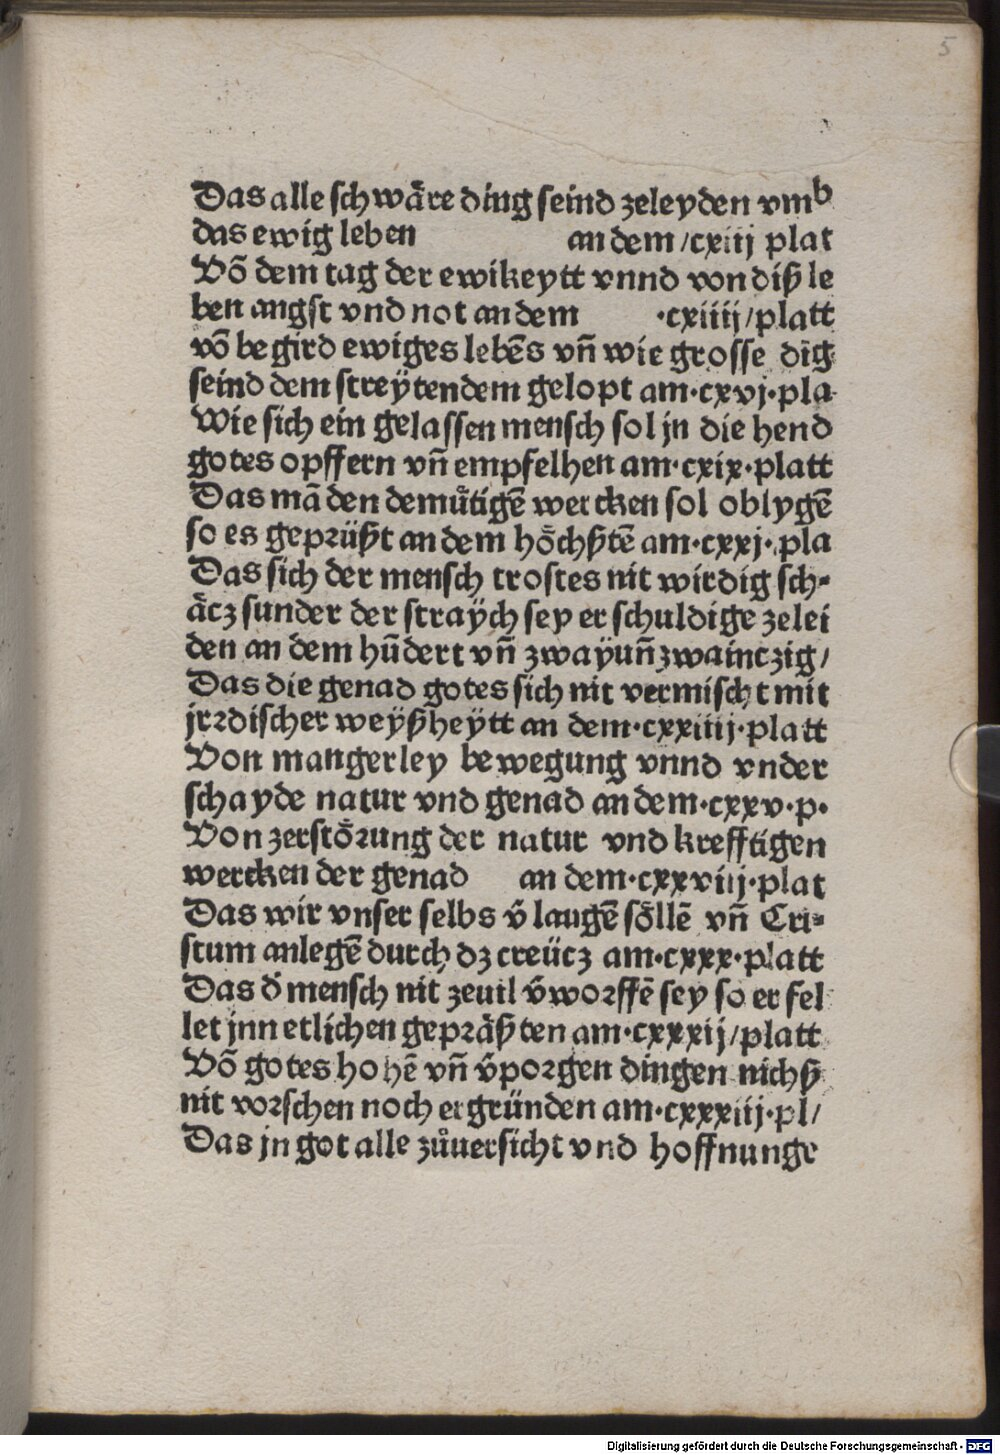 5
Das alle schwäre ding seind zeleyden vmb
das ewig leben an dem /cxiij plat
Vō dem tag der ewikeytt vnnd von diß le
ben angst vnd not an dem ·cxiiij/platt
vō begird ewiges lebēs vn̄ wie grosse dīg
seind dem streÿtendem gelopt am·cxvj·pla
Wie sich ein gelassen mensch sol jn die hend
gotes opffern vn̄ empfelhen am·cxix·platt
Das mā den demuͤtigē wercken sol oblygē
so es geprüßt an dem hoͤchßtē am·cxxj·pla
Das sich der mensch trostes nit wirdig sch⸗
äcz sunder der straÿch sey er schuldige zelei
den an dem hūdert vn̄ zwaÿun̄zwainczig/
Das die genad gotes sich nit vermischt mit
jrꝛdischer weÿßheÿtt an dem·cxxiiij·platt
Von mangerley bewegung vnnd vnder
schayde natur vnd genad an dem·cxxv·p·
Von zerstoͤꝛung der natur vnd krefftigen
wercken der genad an dem·cxxviij·plat
Das wir vnser selbs v̄laugē soͤllē vn̄ Cri⸗
stum anlegē durch dz creücz am·cxxx·platt
Das d̄ mensch nit zeuil v̄woꝛffē sey so er fel
let jnn etlichen gepräßten am·cxxxij/platt
Vō gotes hohē vn̄ v̄poꝛgen dingen nichß
nit voꝛschen noch ergründen am·cxxxiij·pl/
Das jn got alle zuͦuersicht vnd hoffnunge
Digitalisierung gefördert durch die Deutsche Forschungsgemeinschaft - DFG